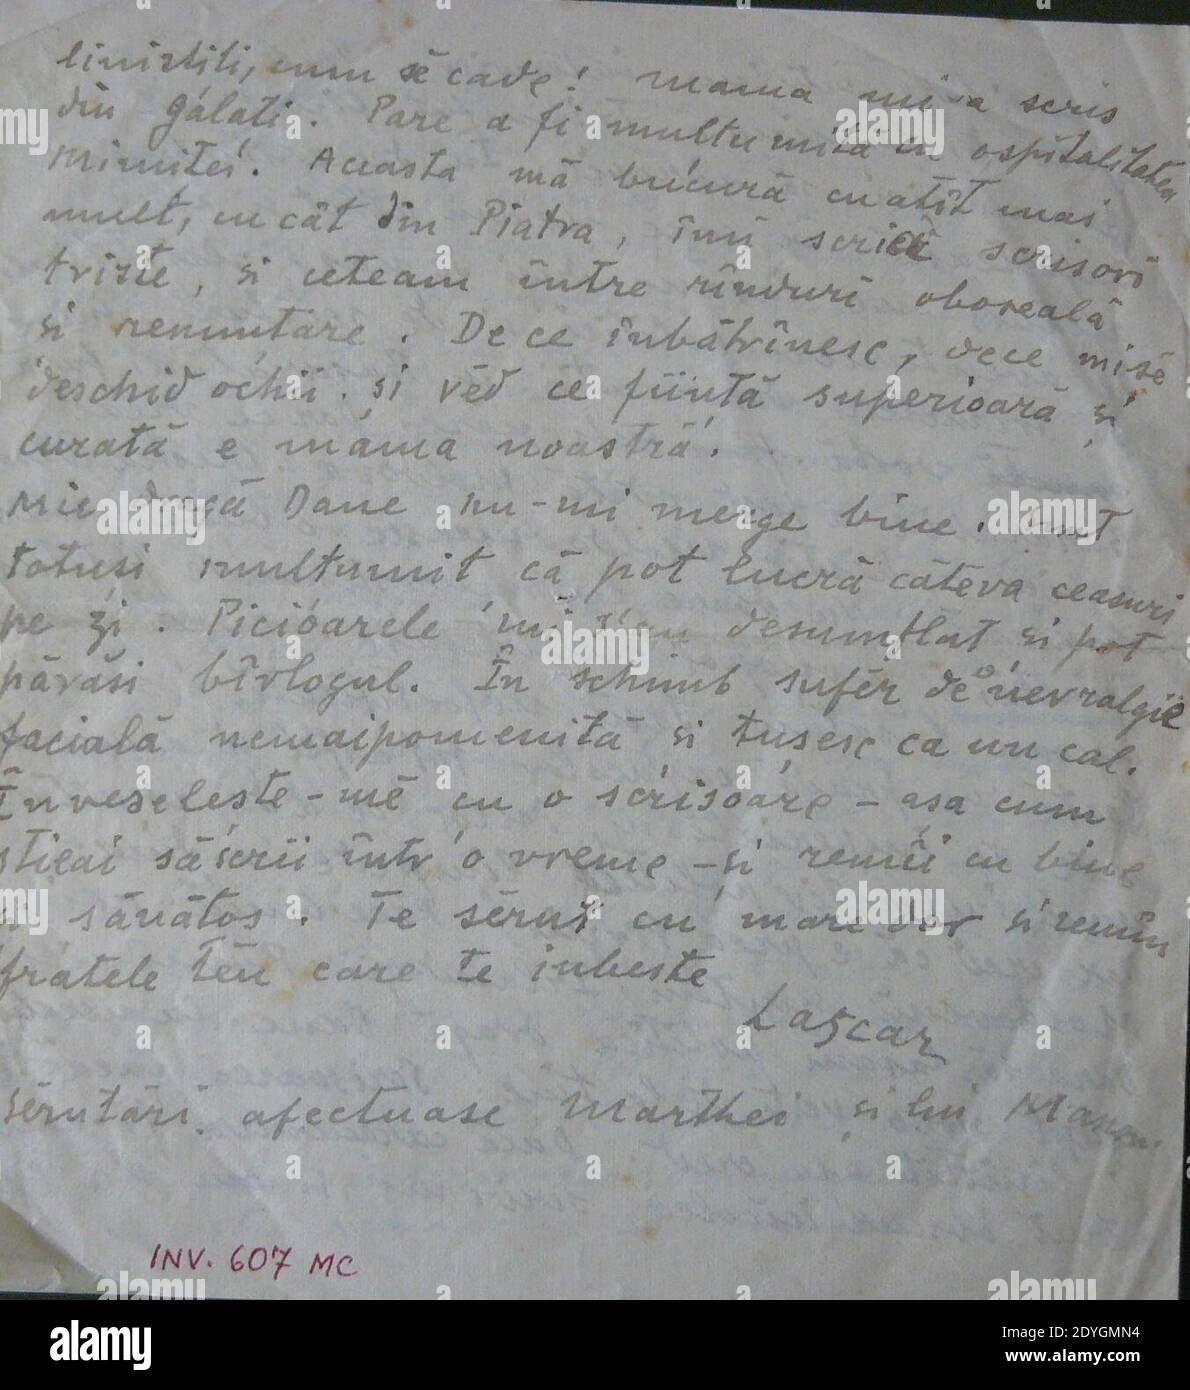 linistiti, cum sĕ cade! Mama mi-a scris
din Galati. Pare a fi multumită cu ospitalitatea
Mimitei. Aceasta mă bucură cu atît mai
mult, cu cât din Piatra, îmi scrie scrisori
triste, si ceteam între rînduri oboseală
si renuntare. De ce îmbătrînesc, dece mi sĕ
deschid ochii. și vĕd ce ființă superioară și
curată e mama noastră.
Mie dragă Dane nu-mi merge bine. Sunt
totusi multumit că pot lucră câteva ceasuri
pe zi. Picioarele mi s'au desumflat si pot
părăsi bîrlogul. În schimb sufĕr de nevralgie
facială nemaipomenită si tușesc ca un cal.
Înveseleste-mĕ cu o scrisoare - asa cum
stieai să scrii într'o vreme - și remîi cu bine
si sănătos. Te sĕrut cu mare dor si remîn
fratele tĕu care te iubeste
Lașcar
Sĕrutări afectuase Marthei și lui
INV. 607 MC
alamy
2DYGMN4
www.alamy.com